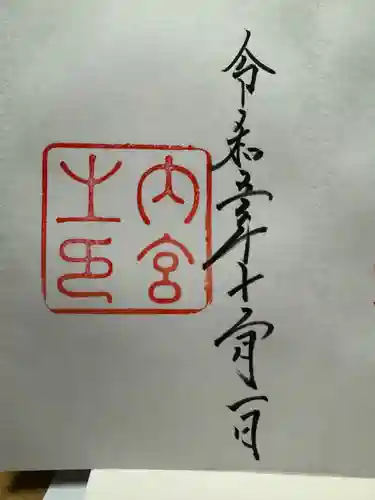 令和五年十二月一日
内宮
之印